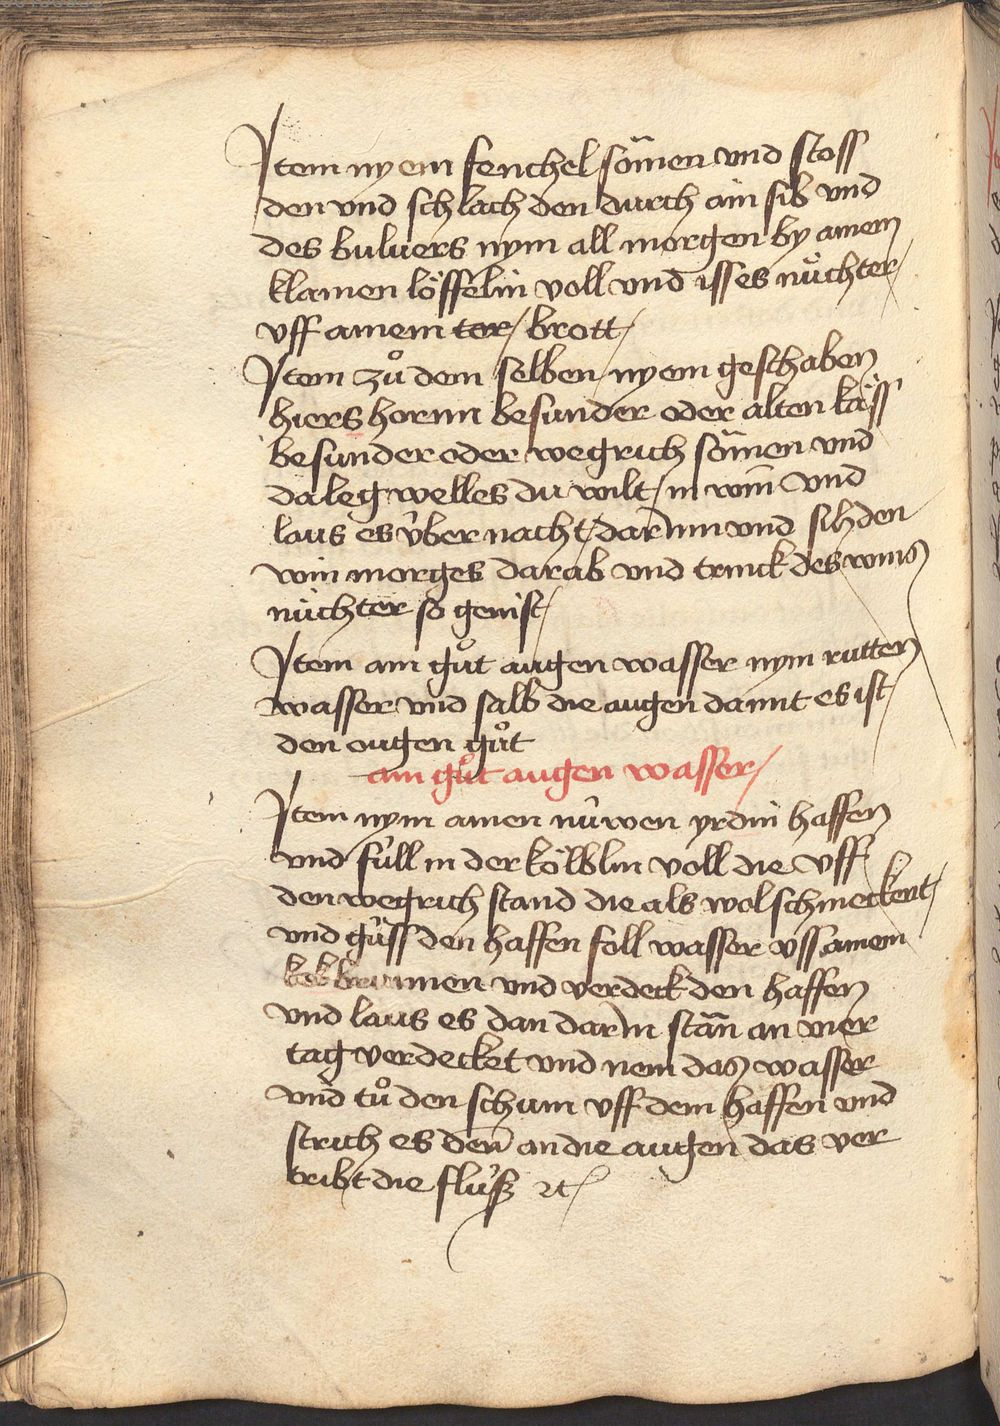 Item nyem fenchel sömen vnd stoss
den vnd schlach den durch ain sib vnd
des buluers nym all morgen by ainem
klainen löffelin voll vnd iss es nüchter
vff ainem ter / brott /
Item zů dem selben nyem geschaben
hiershornn besunder oder alten käss
besunder oder wegrich sömen vnd
da leg welles du wilt / in win vnd
laus es v̈ber nacht / darinn vnd sih den
win morges darab vnd trinck des wins
nüchter so genist /
Item ain gůt augen wasser nym rutten
wasser vnd salb die augen damit es ist
den ougen gůt
ain gůt augen wasser /
Item nym ainen nüwen yrdin haffen
vnd füll in der kölblin voll die vff
den wegrich stand die als wol schmeckent /
vnd güss den haffen foll wasser vss ainem
brunnen vnd verdeck den haffen
vnd laus es dan darin stän an vier
tag verdecket vnd nem das wasser
vnd tů den schum vff dem haffen vnd
strich es den an die augen das ver
tribt die flüß ꝛc /